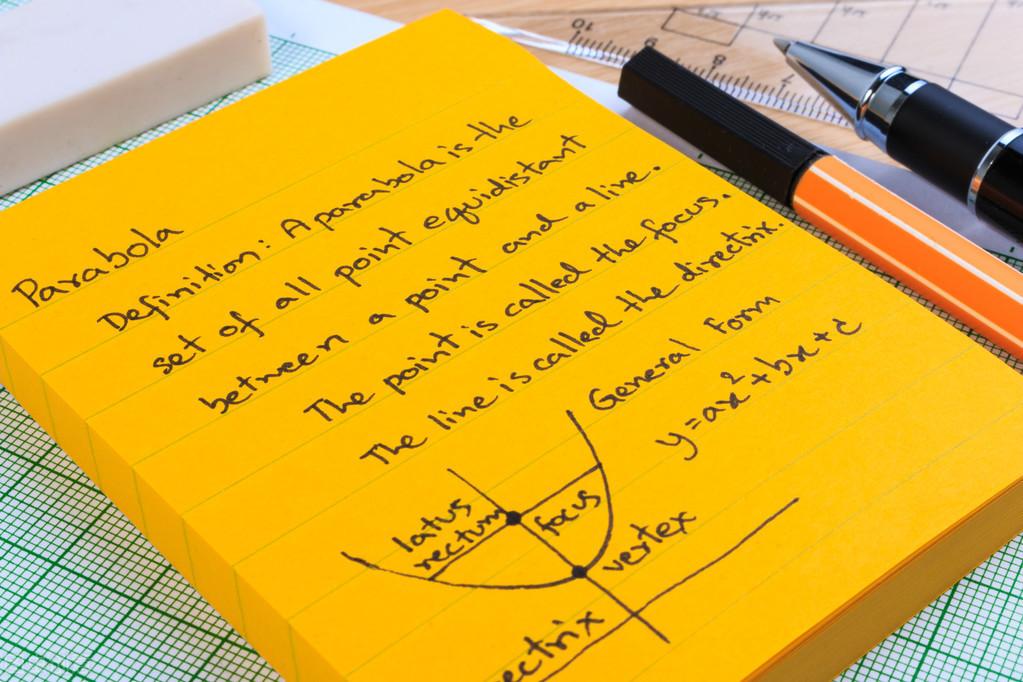 Parabola
Definition: A parabola is the
set of all point equidistant
between a point and a line.
The point is called the focus.
The line is called the directrix.
General Form
y=ax²+bx+c
latus
rectum
focus
vertex
ectrix
10
9
8
7